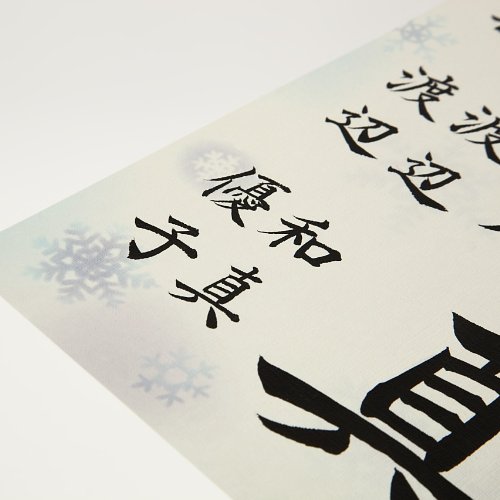 渡辺 和真
渡辺 優子